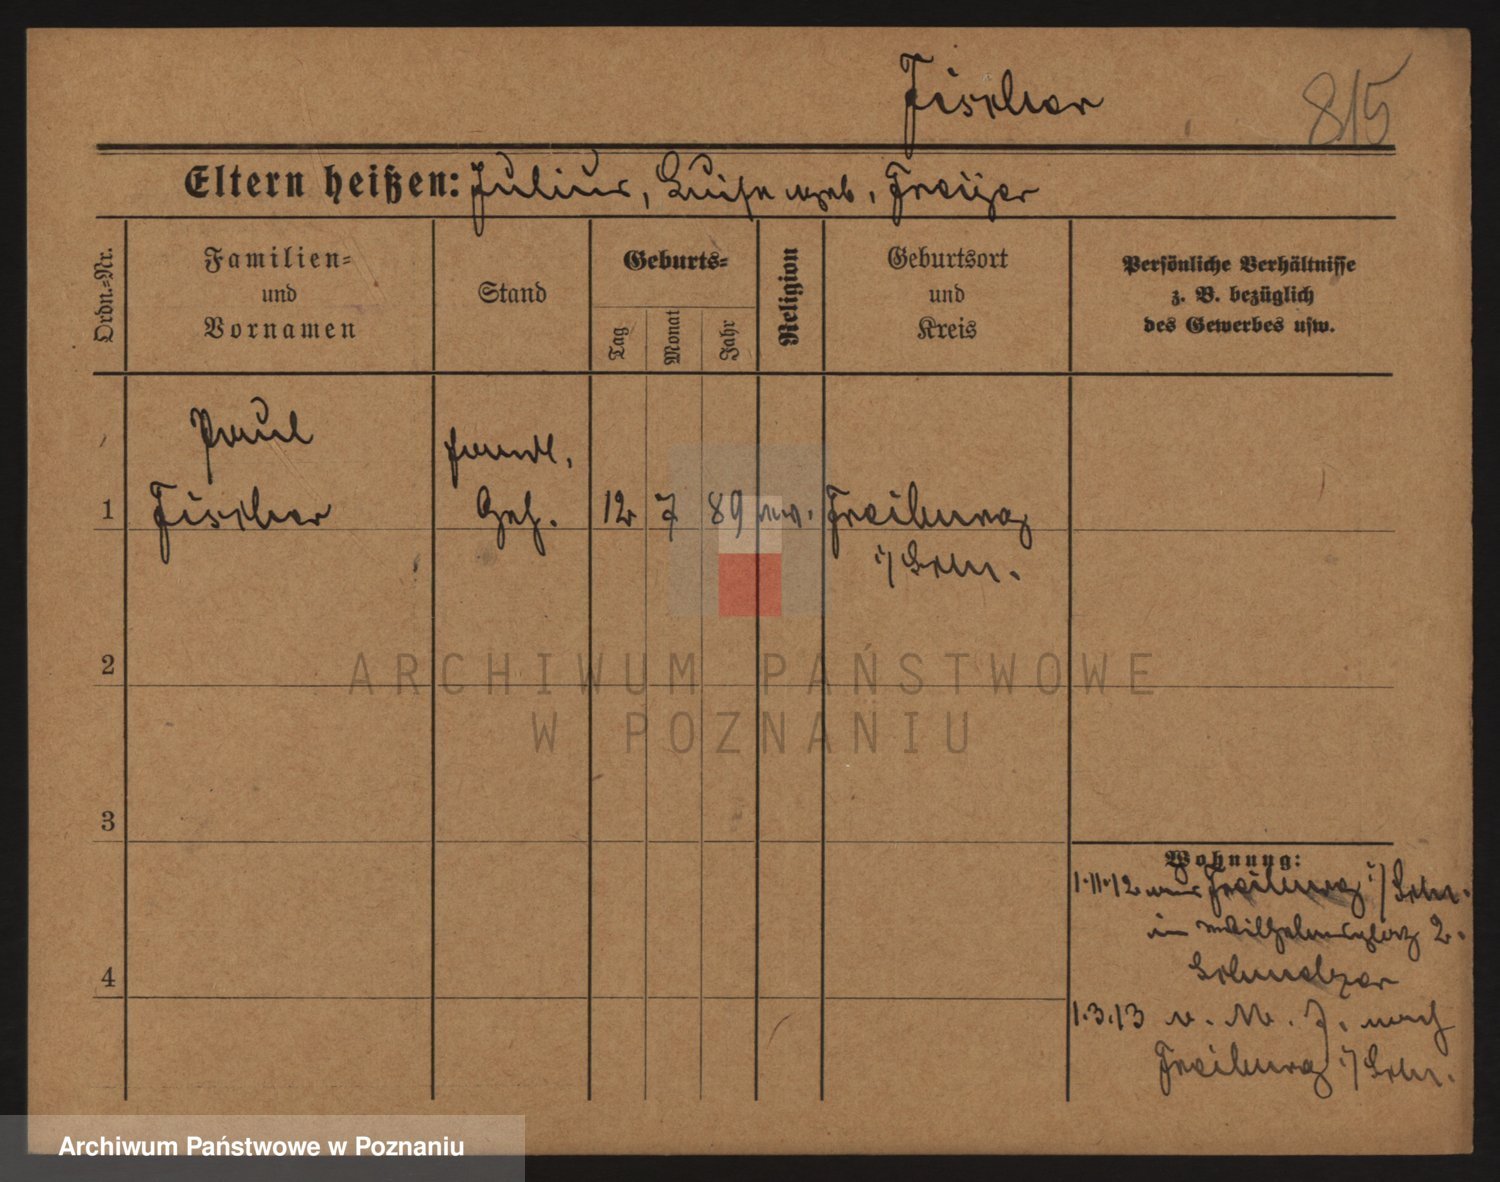 Fischer
815
Eltern heißen: Julius, Luise geb. Freiger
Ordn.-Nr.
Familien-
und
Vornamen
Stand
Geburts-
Tag
Monat
Jahr
Religion
Geburtsort
und
Kreis
Persönliche Verhältnisse
z. B. bezüglich
des Gewerbes usw.
Paul
Handl.
1 Fischer Geh. 12 7 89 ev. Freiburg
i/Schl.
2
3
4
Wohnung:
1.11.12 aus Freiburg i/Schl.
in Wilhelmsplatz 2.
Schmelzer
1.3.13 n. M. Z. nach
Freiburg i/Schl.
ARCHIWUM PAŃSTWOWE
W POZNANIU
Archiwum Państwowe w Poznaniu